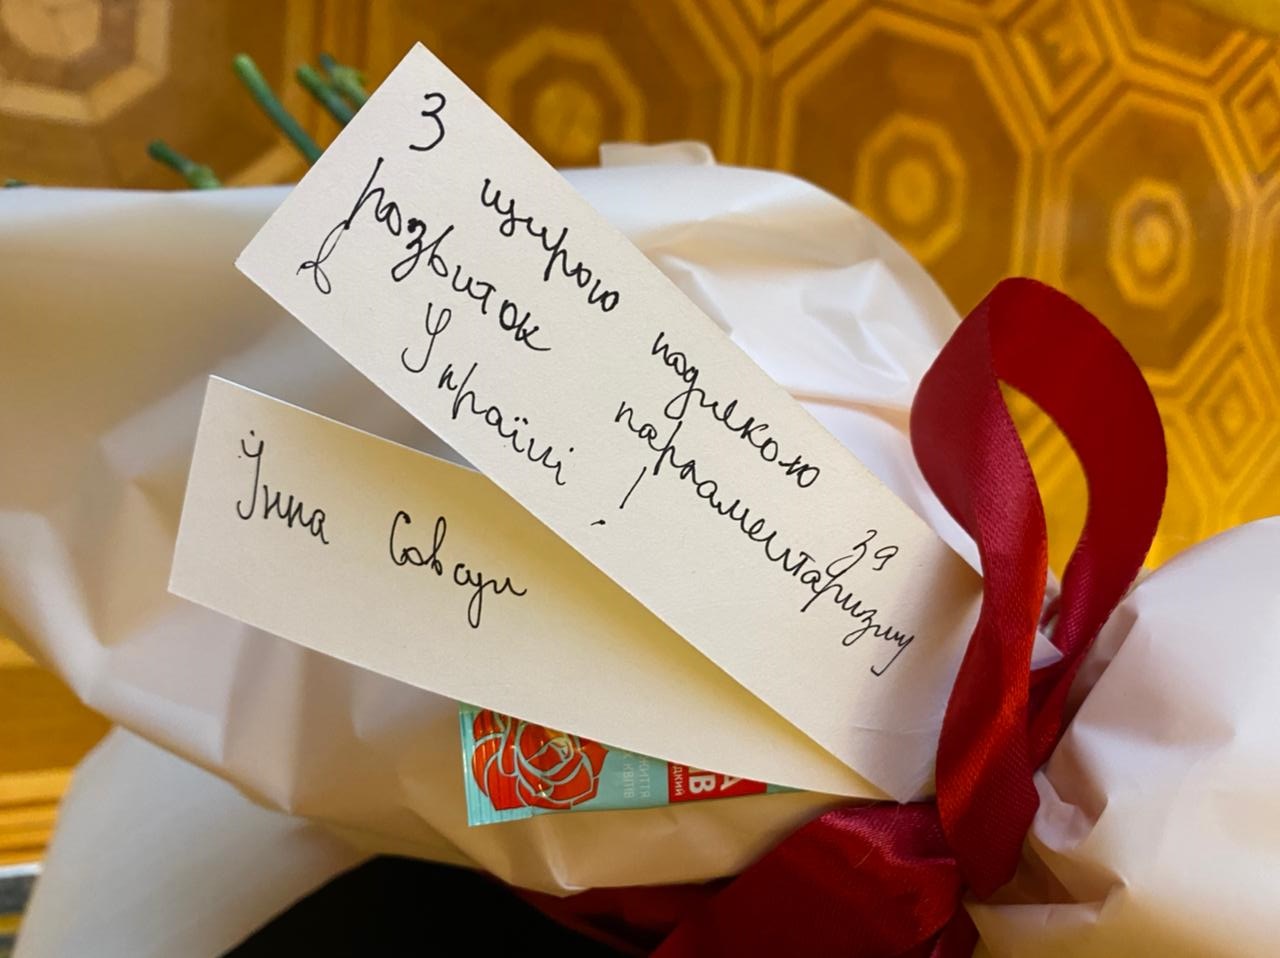 З щирою подякою за
розвиток парламентаризму
в Україні!
Інна Совсун
ЖИТТЯ
КВІТІВ